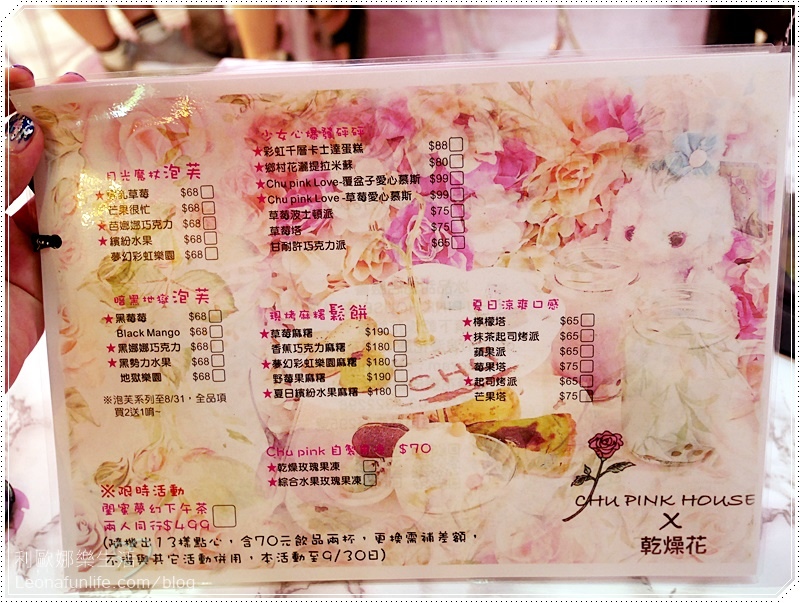 月光魔杖泡芙
草莓 $68
芒果很忙 $68
★芭娜娜巧克力 $68
★繽紛水果 $68
夢幻彩虹樂園 $68
暗黑地獄泡芙
★黑莓莓 $68
Black Mango $68
★黑娜娜巧克力 $68
★黑勢力水果 $68
地獄樂園 $68
※泡芙系列至8/31，全品項
買2送1唷~
少女心爆發砰砰
★彩虹千層卡士達蛋糕 $88
★鄉村花灑提拉米蘇 $80
★Chu pink Love-覆盆子愛心慕斯 $99
★Chu pink Love -草莓愛心慕斯 $99
草莓波士頓派 $75
草莓塔 $75
甘耐許巧克力派 $65
現烤麻糬鬆餅
★草莓麻糬 $190
香蕉巧克力麻糬 $180
★夢幻彩虹樂園麻糬 $180
野莓果麻糬 $190
★夏日繽紛水果麻糬 $180
夏日涼爽口感
★檸檬塔 $65
★抹茶起司烤派 $65
蘋果派 $65
莓果塔 $75
★起司烤派 $65
芒果塔 $75
Chu pink 自製 $70
★乾燥玫瑰果凍
★綜合水果玫瑰果凍
※限時活動
閨蜜夢幻下午茶
兩人同行$499
(隨機出13樣點心，含70元飲品兩杯，更換需補差額，
與其它活動併用，本活動至9/30日)
CHU PINK HOUSE
X
乾燥花
利歐娜樂生活
Leonafunlife.com/blog